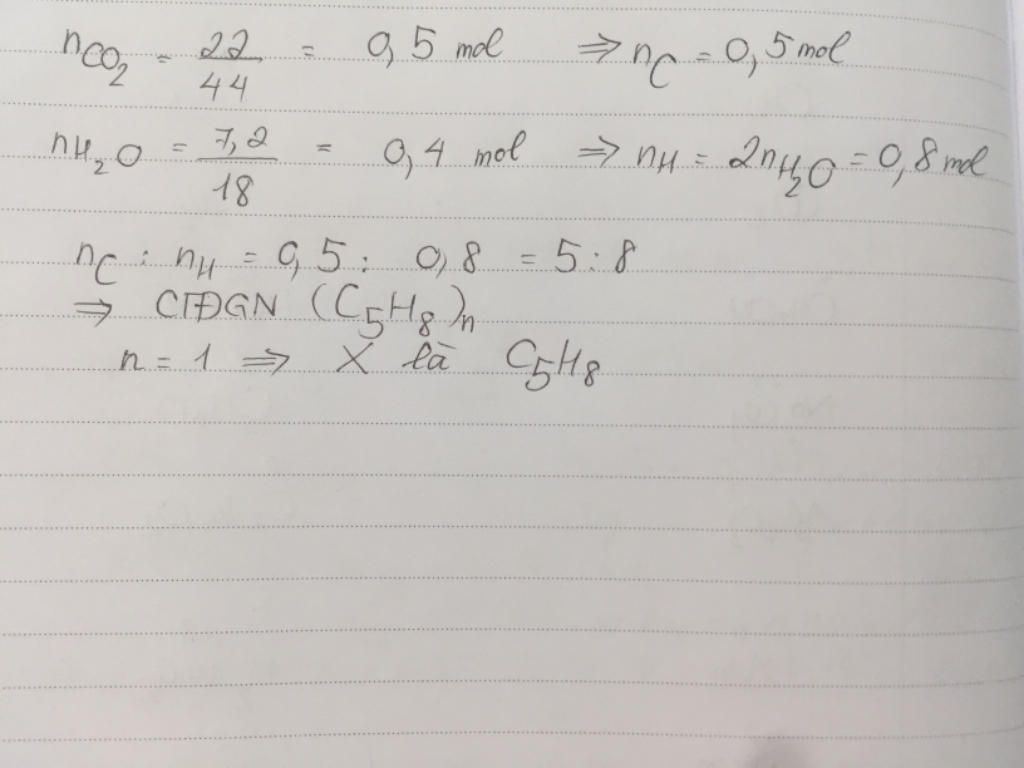 nCO₂ = 22/44 = 0,5 mol ⇒ nC = 0,5 mol
nH₂O = 7,2/18 = 0,4 mol ⇒ nH = 2nH₂O = 0,8 mol
nC : nH = 0,5 : 0,8 = 5 : 8
⇒ CTĐGN (C₅H₈)ₙ
n = 1 ⇒ X là C₅H₈